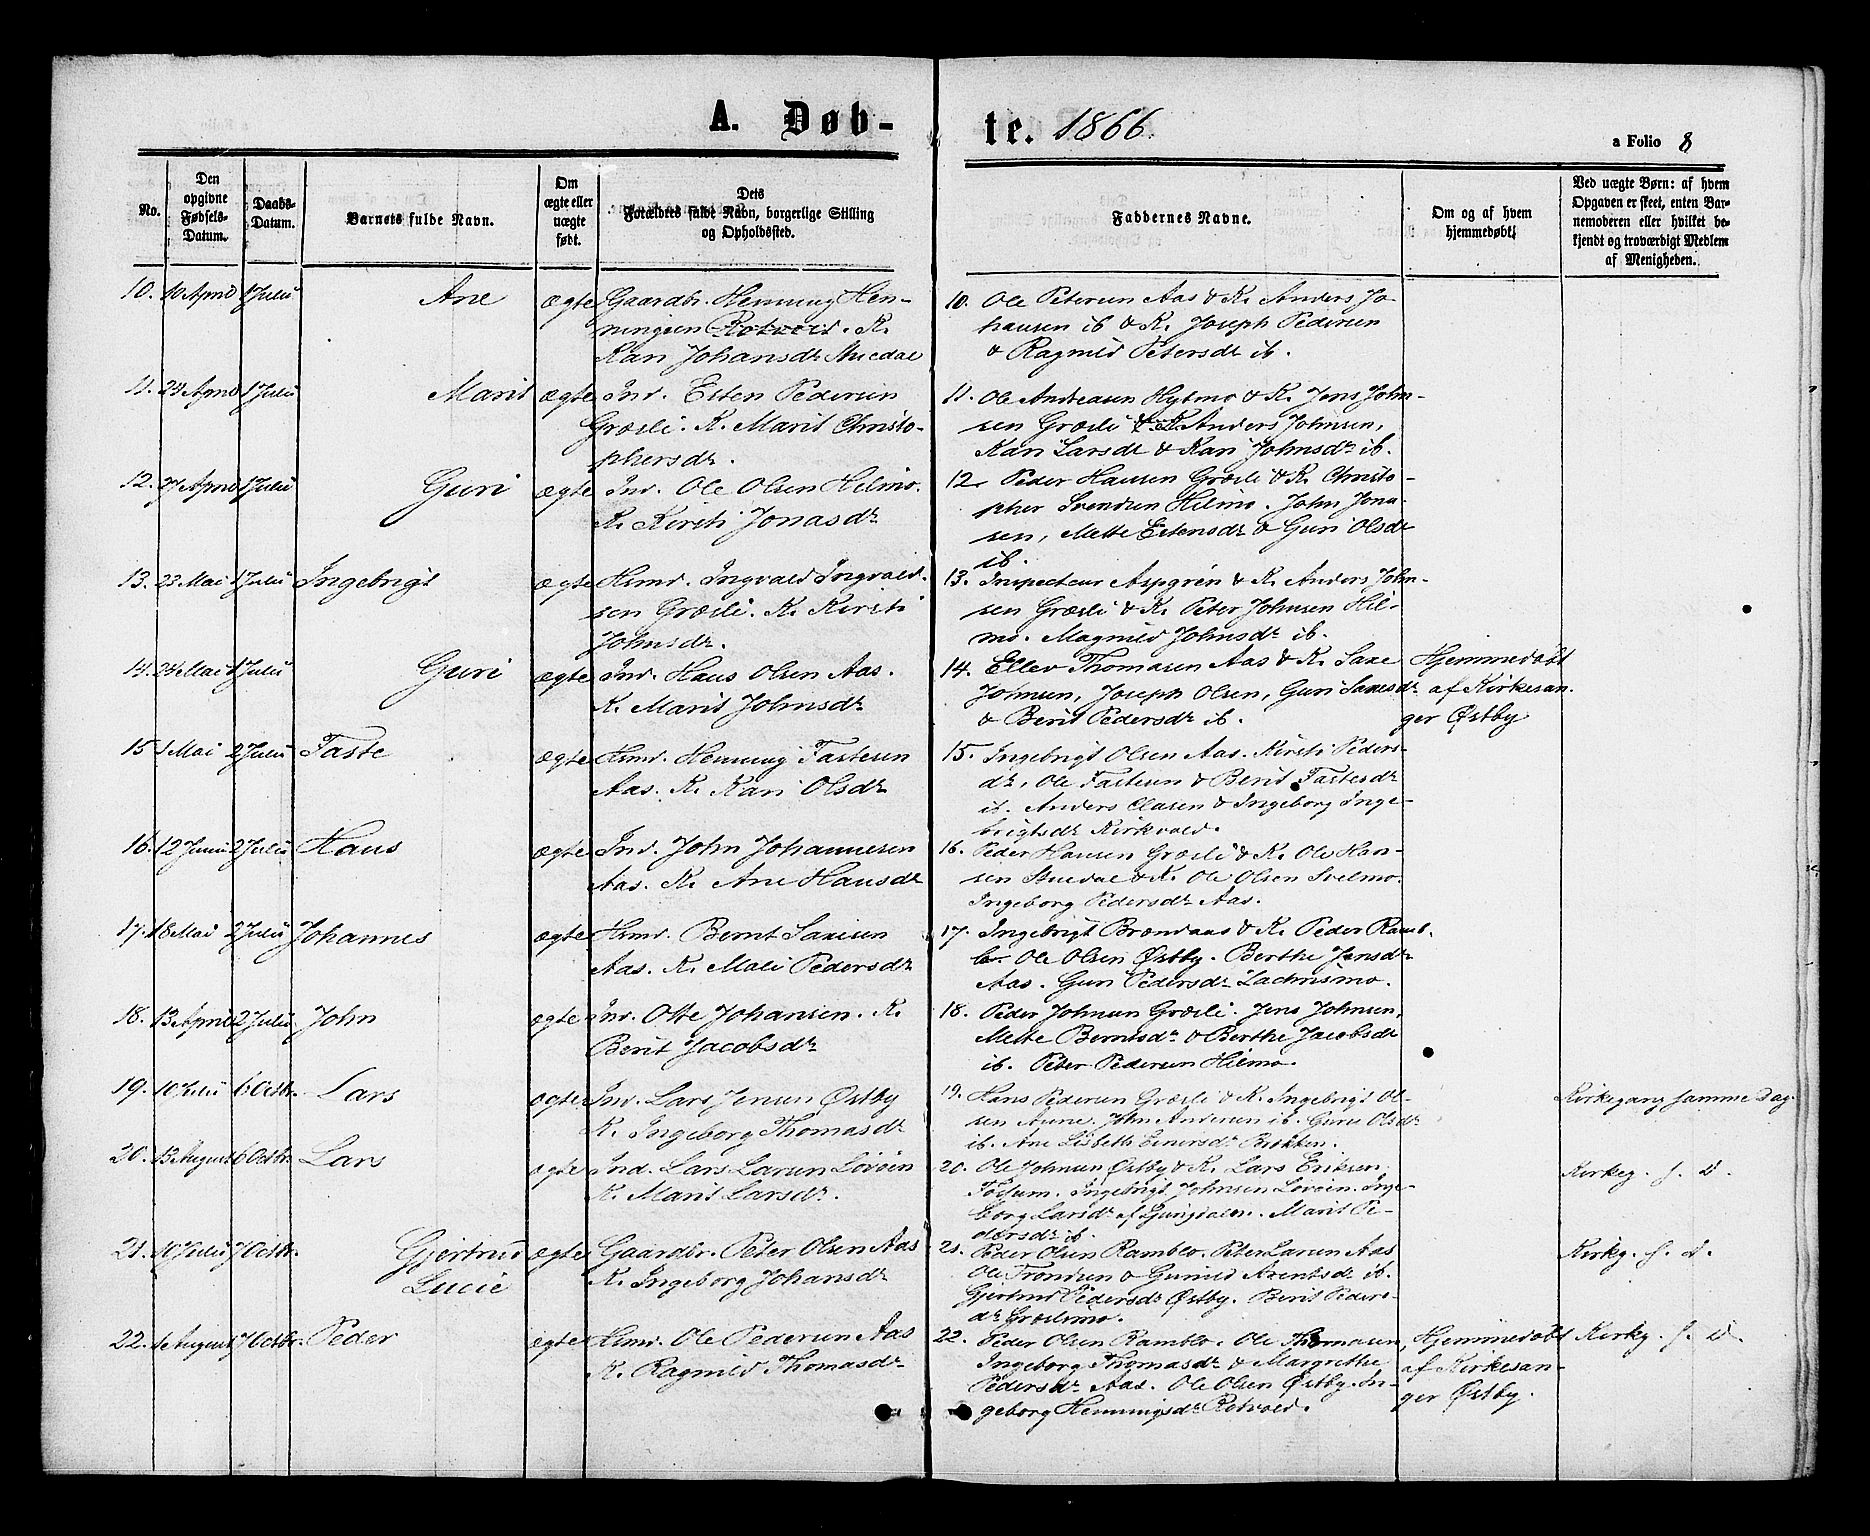 A. Døb-
te. 1866.
a Folio 8
No.
Den opgivne Fødsels-Datum.
Daabs-Datum.
Barnets fulde Navn.
Om ægte eller uægte født.
Dets Forældres fulde Navn, borgerlige Stilling og Opholdssted.
Faddernes Navne.
Om og af hvem hjemmedøbt.
Ved uægte Børn: af hvem Opgaven er skeet, enten Barnemoderen eller hvilket bekjendt og troværdigt Medlem af Menigheden.
10. 10 April 1 Julii Ane ægte Gaardbr. Henning Hen-
ningsen Rotvold. K.
Kari Johansdr Stuedal
10. Ole Petersen Aas & K. Anders Jo-
hansen ib & K. Joseph Pedersen
& Ragnild Petersdr ib.
11. 24 April 1 Julii Marit ægte Ind. Esten Pedersen
Græsli. K. Marit Christo-
phersdr.
11. Ole Andreasen Kytmo & K. Jens John-
sen Græsli & K. Anders Johnsen,
Kari Larsdr & Kari Johnsdr ib.
12. 27 April 1 Julii Guri ægte Ind. Ole Olsen Hilmo.
K. Kirsti Jonasdr
12. Peder Hansen Græsli & K. Christo-
pher Svendsen Hilmo. John Jona-
sen, Mette Estensdr & Guri Olsdr
ib.
13. 23 Mai 1 Julii Ingebrigt ægte Hsmd. Ingvald Ingvald-
sen Græsli. K. Kirsti
Johnsdr.
13. Inspecteur Aspgrén & K. Anders John-
sen Græsli & K. Peter Johnsen Hil-
mo. Magnild Johnsdr ib.
14. 24 Mai 1 Julii Guri ægte Ind. Hans Olsen Aas.
K. Marit Johnsdr
14. Ellev Thomasen Aas & K. Saxe
Johnsen, Joseph Olsen, Guri Saxesdr
& Berit Pedersdr ib.
Hjemmedøbt
af Kirkesan-
ger Østby
15. 1 Mai 2 Julii Faste ægte Hsmd. Henning Fastesen
Aas. K. Kari Olsdr
15. Ingebrigt Olsen Aas. Kirsti Peders-
dr, Ole Fastesen & Berit Fastesdr
ib. Anders Olasen & Ingeborg Inge-
brigtsdr Kirkvold.
16. 12 Juni 2 Julii Hans ægte Ind. John Johannesen
Aas. K. Ane Hansdr
16. Peder Hansen Græsli & K. Ole Han-
sen Stuedal & K. Ole Olsen Svelmo.
Ingeborg Pedersdr Aas.
17. 18 Mai 2 Julii Johannes ægte Hsmd. Bernt Saxesen
Aas. K. Mali Pedersdr
17. Ingebrigt Brændaas & K. Peder Ramb-
lo Ole Olsen Østby. Berthe Jensdr
Aas. Guri Pedersdr
18. 13 April 2 Julii John ægte Ind. Otte Johansen. K.
Berit Jacobsdr
18. Peder Johnsen Græsli. Jens Johnsen,
Mette Berntsdr & Berthe Jacobsdr
ib. Peter Pedersen Hilmo.
19. 10 Julii 6 Octbr. Lars ægte Ind. Lars Jensen Østby
K. Ingeborg Thomasdr
19. Hans Pedersen Græsli & K. Ingebrigt Ol-
sen Aune. John Andersen ib. Guru Olsdr
ib. Ane Lisbeth Einersdr
Kirkegang samme Dag.
20. 13 August 6 Octbr. Lars ægte Ind. Lars Larsen Løvøen
K. Marit Larsdr.
20. Ole Johnsen Østby & K. Lars Eriksen
Fossum. Ingebrigt Johnsen Løvøen. Inge-
borg Larsdr af Ljungdalen. Marit Pe-
dersdr ib.
Kirkeg. s. D.
21. 10 Julii 7 Octbr. Gjertrud
Lucie
ægte Gaardbr. Peter Olsen Aas
K. Ingeborg Johansdr
21. Peder Olsen Ramblo. Peter Larsen Aas
Ole Trondsen & Gunild Arentsdr ib.
Gjertrud Pedersdr Østby. Berit Peders-
dr Græslimo.
Kirkg. s. D.
22. 1 August 7 Octbr. Peder ægte Hsmd. Ole Pedersen Aas
K. Ragnild Thomasdr
22. Peder Olsen Ramblo. Ole Thomasen,
Ingeborg Thomasdr & Margrethe
Pedersdr Aas. Ole Olsen Østby. In-
geborg Henningsdr Rotvold.
Hjemmedøbt
af Kirkesan-
ger Østby.
Kirkg. s. D.